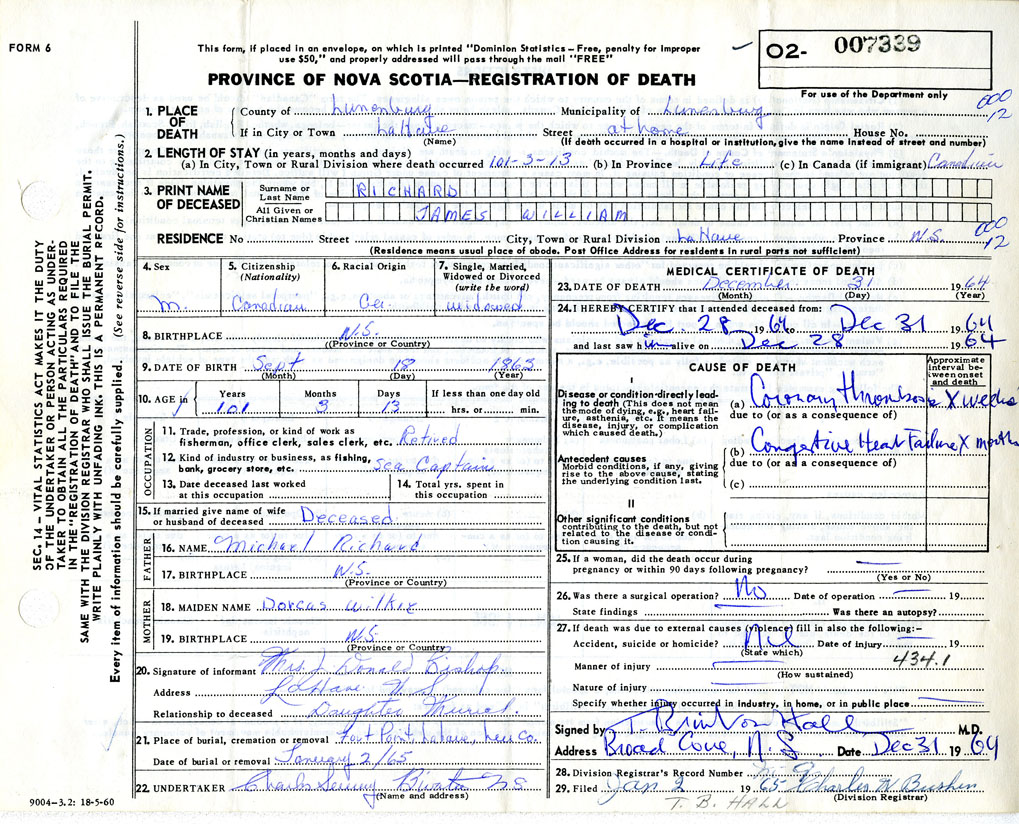 FORM 6
This form, if placed in an envelope, on which is printed "Dominion Statistics – Free, penalty for improper
use $50," and properly addressed will pass through the mail "FREE"
PROVINCE OF NOVA SCOTIA—REGISTRATION OF DEATH
O2- 007339
For use of the Department only
000
12
1. PLACE OF DEATH
County of Lunenburg Municipality of Lunenburg
If in City or Town LaHave Street at home House No.
(Name) (If death occurred in a hospital or institution, give the name instead of street and number)
2. LENGTH OF STAY (in years, months and days)
(a) In City, Town or Rural Division where death occurred 101-3-13 (b) In Province Life (c) In Canada (if immigrant) Canadian
3. PRINT NAME OF DECEASED
Surname or Last Name RICHARD
All Given or Christian Names JAMES WILLIAM
000
12
RESIDENCE No Street City, Town or Rural Division LaHave Province N.S.
(Residence means usual place of abode. Post Office Address for residents in rural parts not sufficient)
4. Sex M.
5. Citizenship (Nationality) Canadian
6. Racial Origin
7. Single, Married, Widowed or Divorced (write the word) widowed
8. BIRTHPLACE N.S.
(Province or Country)
9. DATE OF BIRTH Sept 18 1863
(Month) (Day) (Year)
10. AGE in Years 101 Months 3 Days 13 If less than one day old hrs. or min.
OCCUPATION
11. Trade, profession, or kind of work as
fisherman, office clerk, sales clerk, etc. Retired
12. Kind of industry or business, as fishing,
bank, grocery store, etc. Sea Captain
13. Date deceased last worked
at this occupation
14. Total yrs. spent in
this occupation
15. If married give name of wife
or husband of deceased Deceased
FATHER
16. NAME Michael Richard
17. BIRTHPLACE N.S.
(Province or Country)
MOTHER
18. MAIDEN NAME Dorcas Wilkie
19. BIRTHPLACE N.S.
(Province or Country)
20. Signature of informant Mrs. J. Donald Bishop
Address LaHave N S
Relationship to deceased Daughter Muriel.
21. Place of burial, cremation or removal Fort Point, LaHave, Lun Co.
Date of burial or removal January 2/65
22. UNDERTAKER Charles Bwater N.S.
(Name and address)
9004-3.2: 18-5-60
MEDICAL CERTIFICATE OF DEATH
23. DATE OF DEATH December 31 1964
(Month) (Day) (Year)
24. I HEREBY CERTIFY that I attended deceased from:
Dec. 28 1964 to Dec 31 1964
and last saw him alive on Dec 28 1964
CAUSE OF DEATH
Approximate interval between onset and death
I
Disease or condition directly leading to death (This does not mean the mode of dying, e.g., heart failure, asthenia, etc. It means the disease, injury, or complication which caused death.)
(a) Coronary thrombosis X weeks
due to (or as a consequence of)
(b) Congestive Heart Failure X months
due to (or as a consequence of)
(c)
Antecedent causes
Morbid conditions, if any, giving rise to the above cause, stating the underlying condition last.
II
Other significant conditions
contributing to the death, but not related to the disease or condition causing it.
25. If a woman, did the death occur during
pregnancy or within 90 days following pregnancy?
(Yes or No)
26. Was there a surgical operation? No Date of operation 19
State findings Was there an autopsy?
27. If death was due to external causes (violence) fill in also the following:–
Accident, suicide or homicide? Nil Date of injury 19
(State which) 434.1
Manner of injury
(How sustained)
Nature of injury
Specify whether injury occurred in industry, in home, or in public place
Signed by T. Brinton Hall M.D.
Address Broad Cove, N.S. Date Dec 31 1964
28. Division Registrar's Record Number
29. Filed Jan 2 1965 Charles W Bushen
(Division Registrar)
T. B. HALL
SEC. 14 – VITAL STATISTICS ACT MAKES IT THE DUTY
OF THE UNDERTAKER OR PERSON ACTING AS UNDER-
TAKER TO OBTAIN ALL THE PARTICULARS REQUIRED
IN THE "REGISTRATION OF DEATH" AND TO FILE THE
SAME WITH THE DIVISION REGISTRAR WHO SHALL ISSUE THE BURIAL PERMIT.
WRITE PLAINLY WITH UNFADING INK. THIS IS A PERMANENT RECORD.
Every item of information should be carefully supplied. (See reverse side for instructions.)